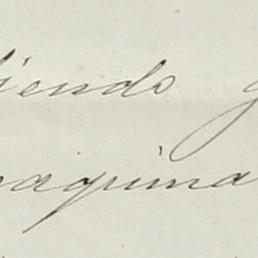 iendo y
maquina